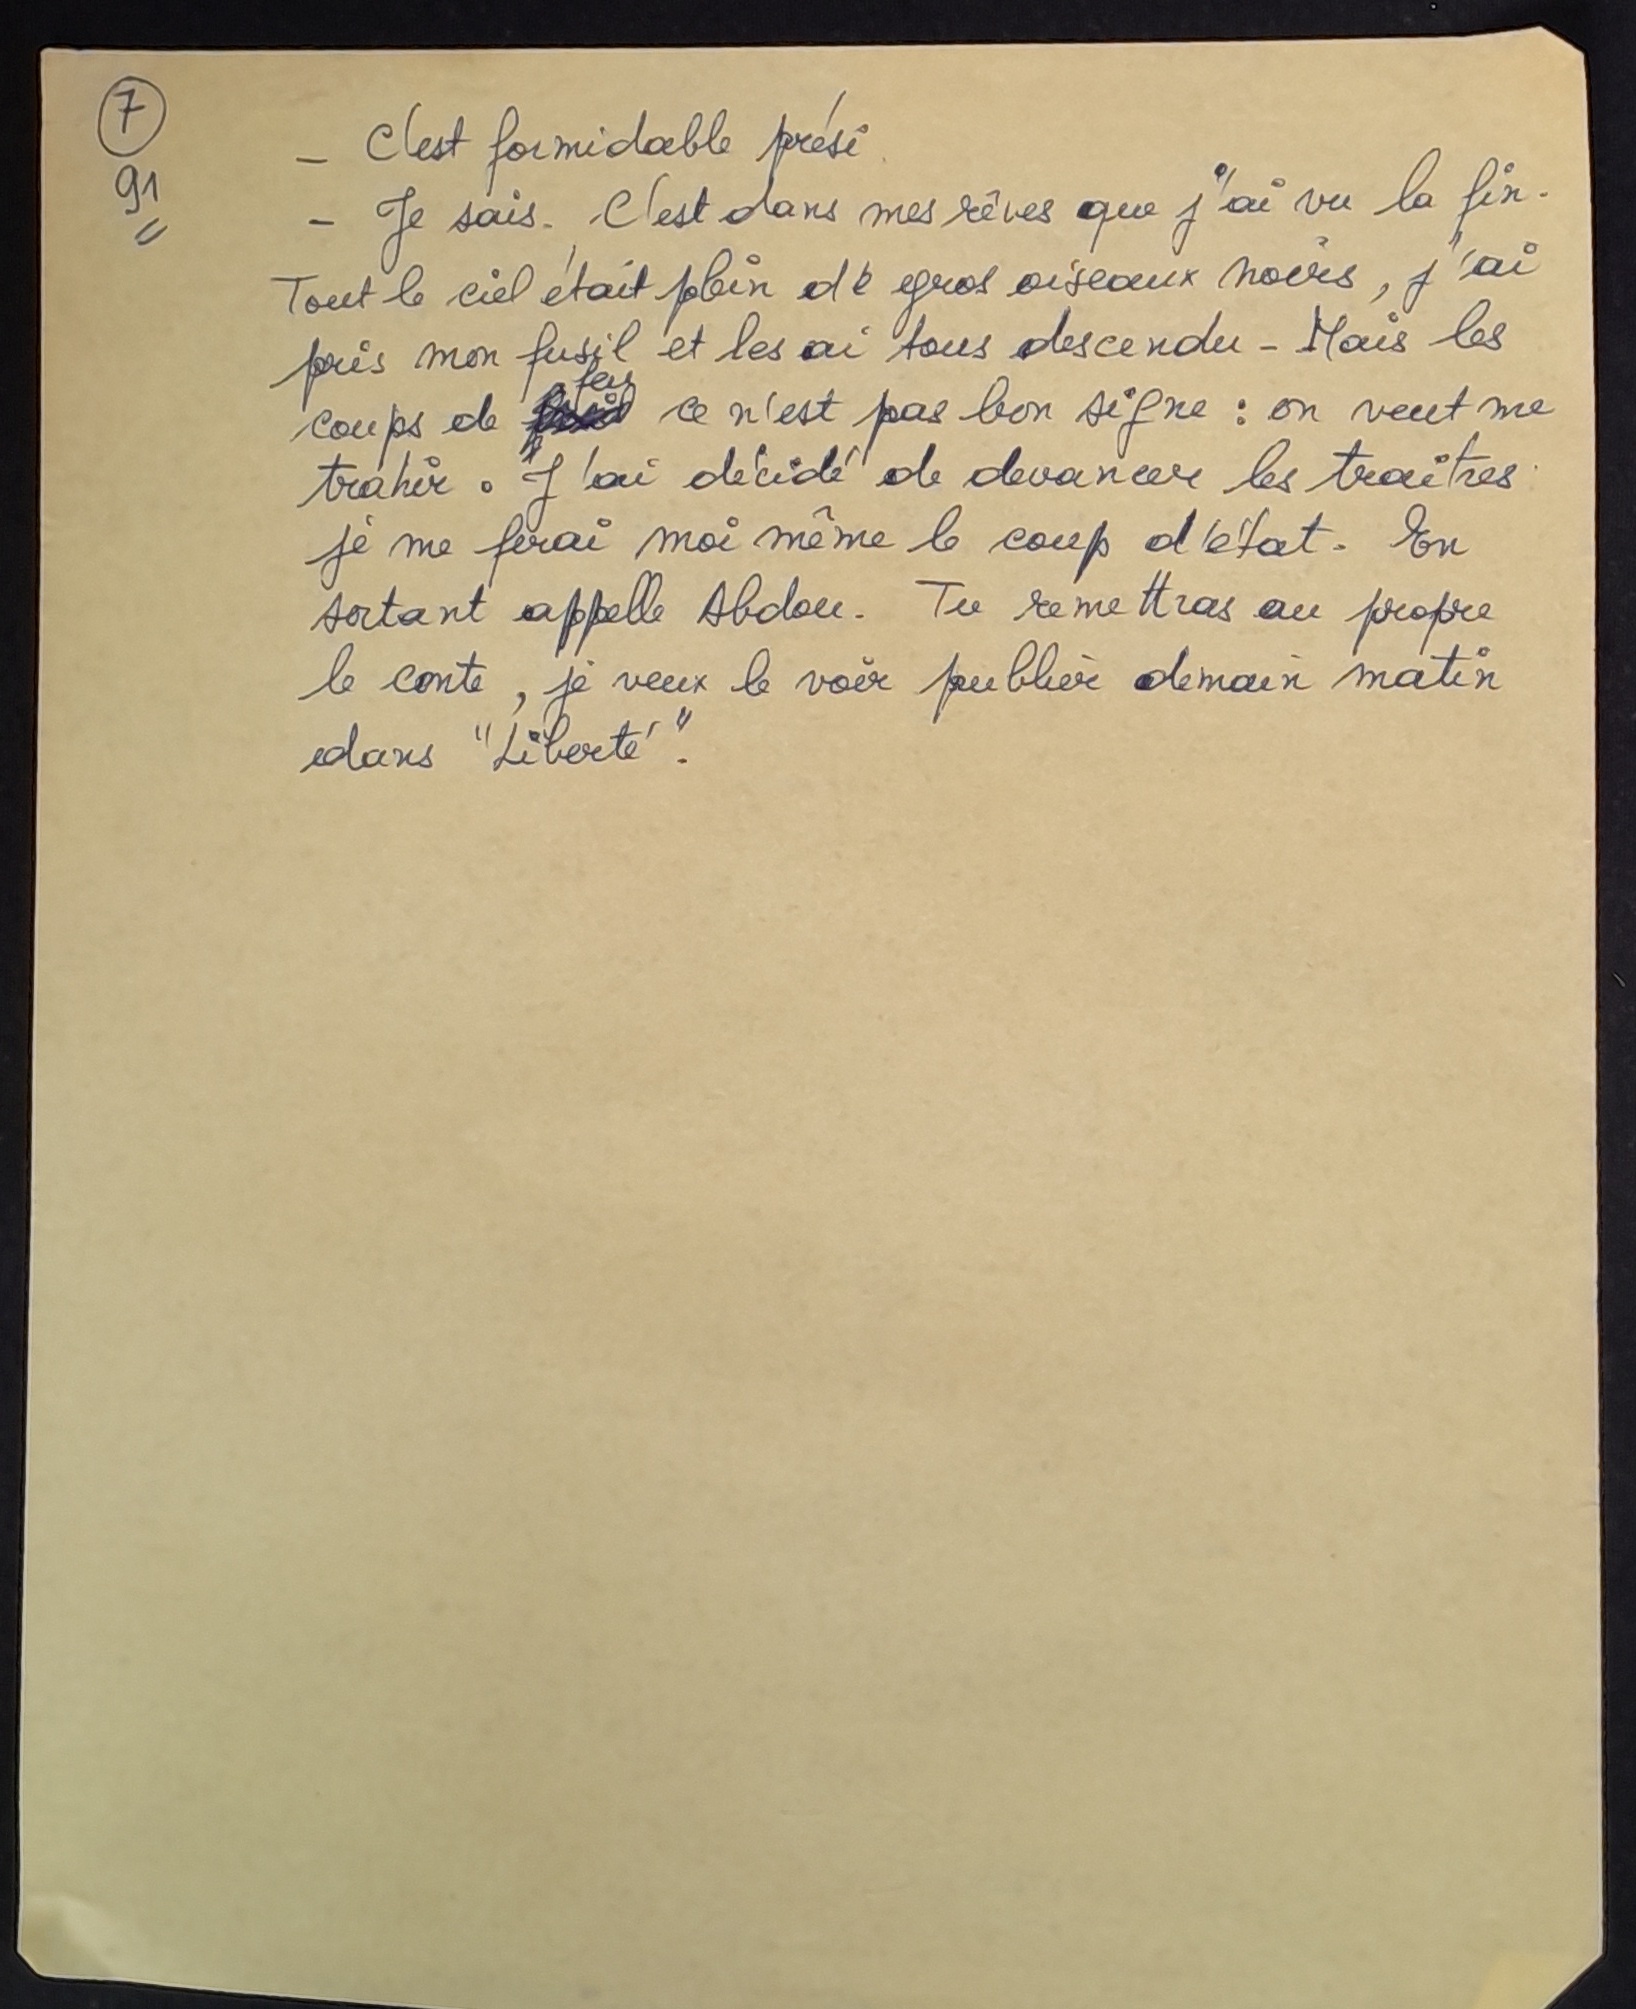 7
91
– C'est formidable prési.
– Je sais. C'est dans mes rêves que j'ai vu la fin.
Tout le ciel était plein de gros oiseaux noirs, j'ai
pris mon fusil et les ai tous descendu – Mais les
feu
coups de ce n'est pas bon signe : on veut me
trahir. J'ai décidé de devancer les traîtres
je me ferai moi même le coup d'état. En
sortant appelle Abdou. Tu remettras au propre
le conte, je veux le voir publier demain matin
dans "Liberté".